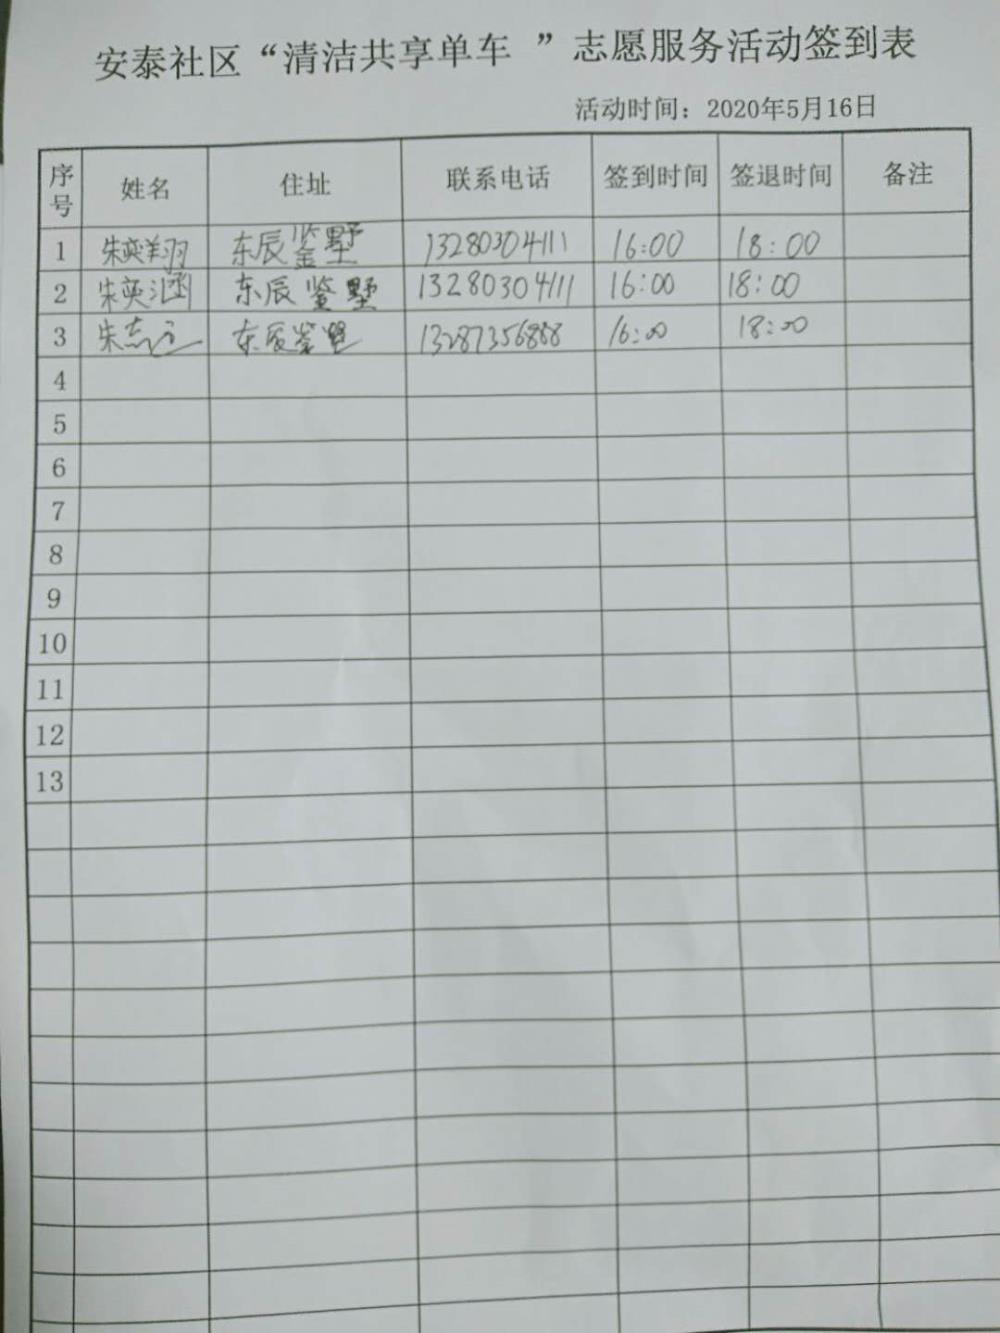 安泰社区“清洁共享单车 ”志愿服务活动签到表
活动时间：2020年5月16日
序号 姓名 住址 联系电话 签到时间 签退时间 备注
1 朱奕翔 东辰鉴墅 13280304111 16:00 18:00
2 朱奕涵 东辰鉴墅 13280304111 16:00 18:00
3 朱志 东辰鉴墅 13287356888 16:00 18:00
4
5
6
7
8
9
10
11
12
13